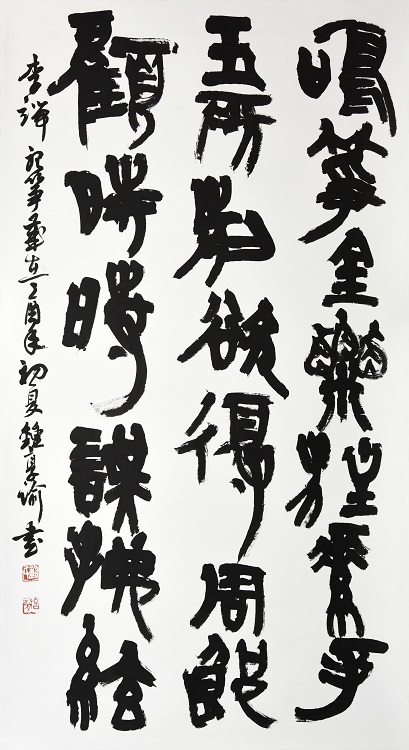 鳴箏金粟柱素手
玉房前欲得周郎
顧時時誤拂絃
李端聽箏歲在丁酉年初夏書